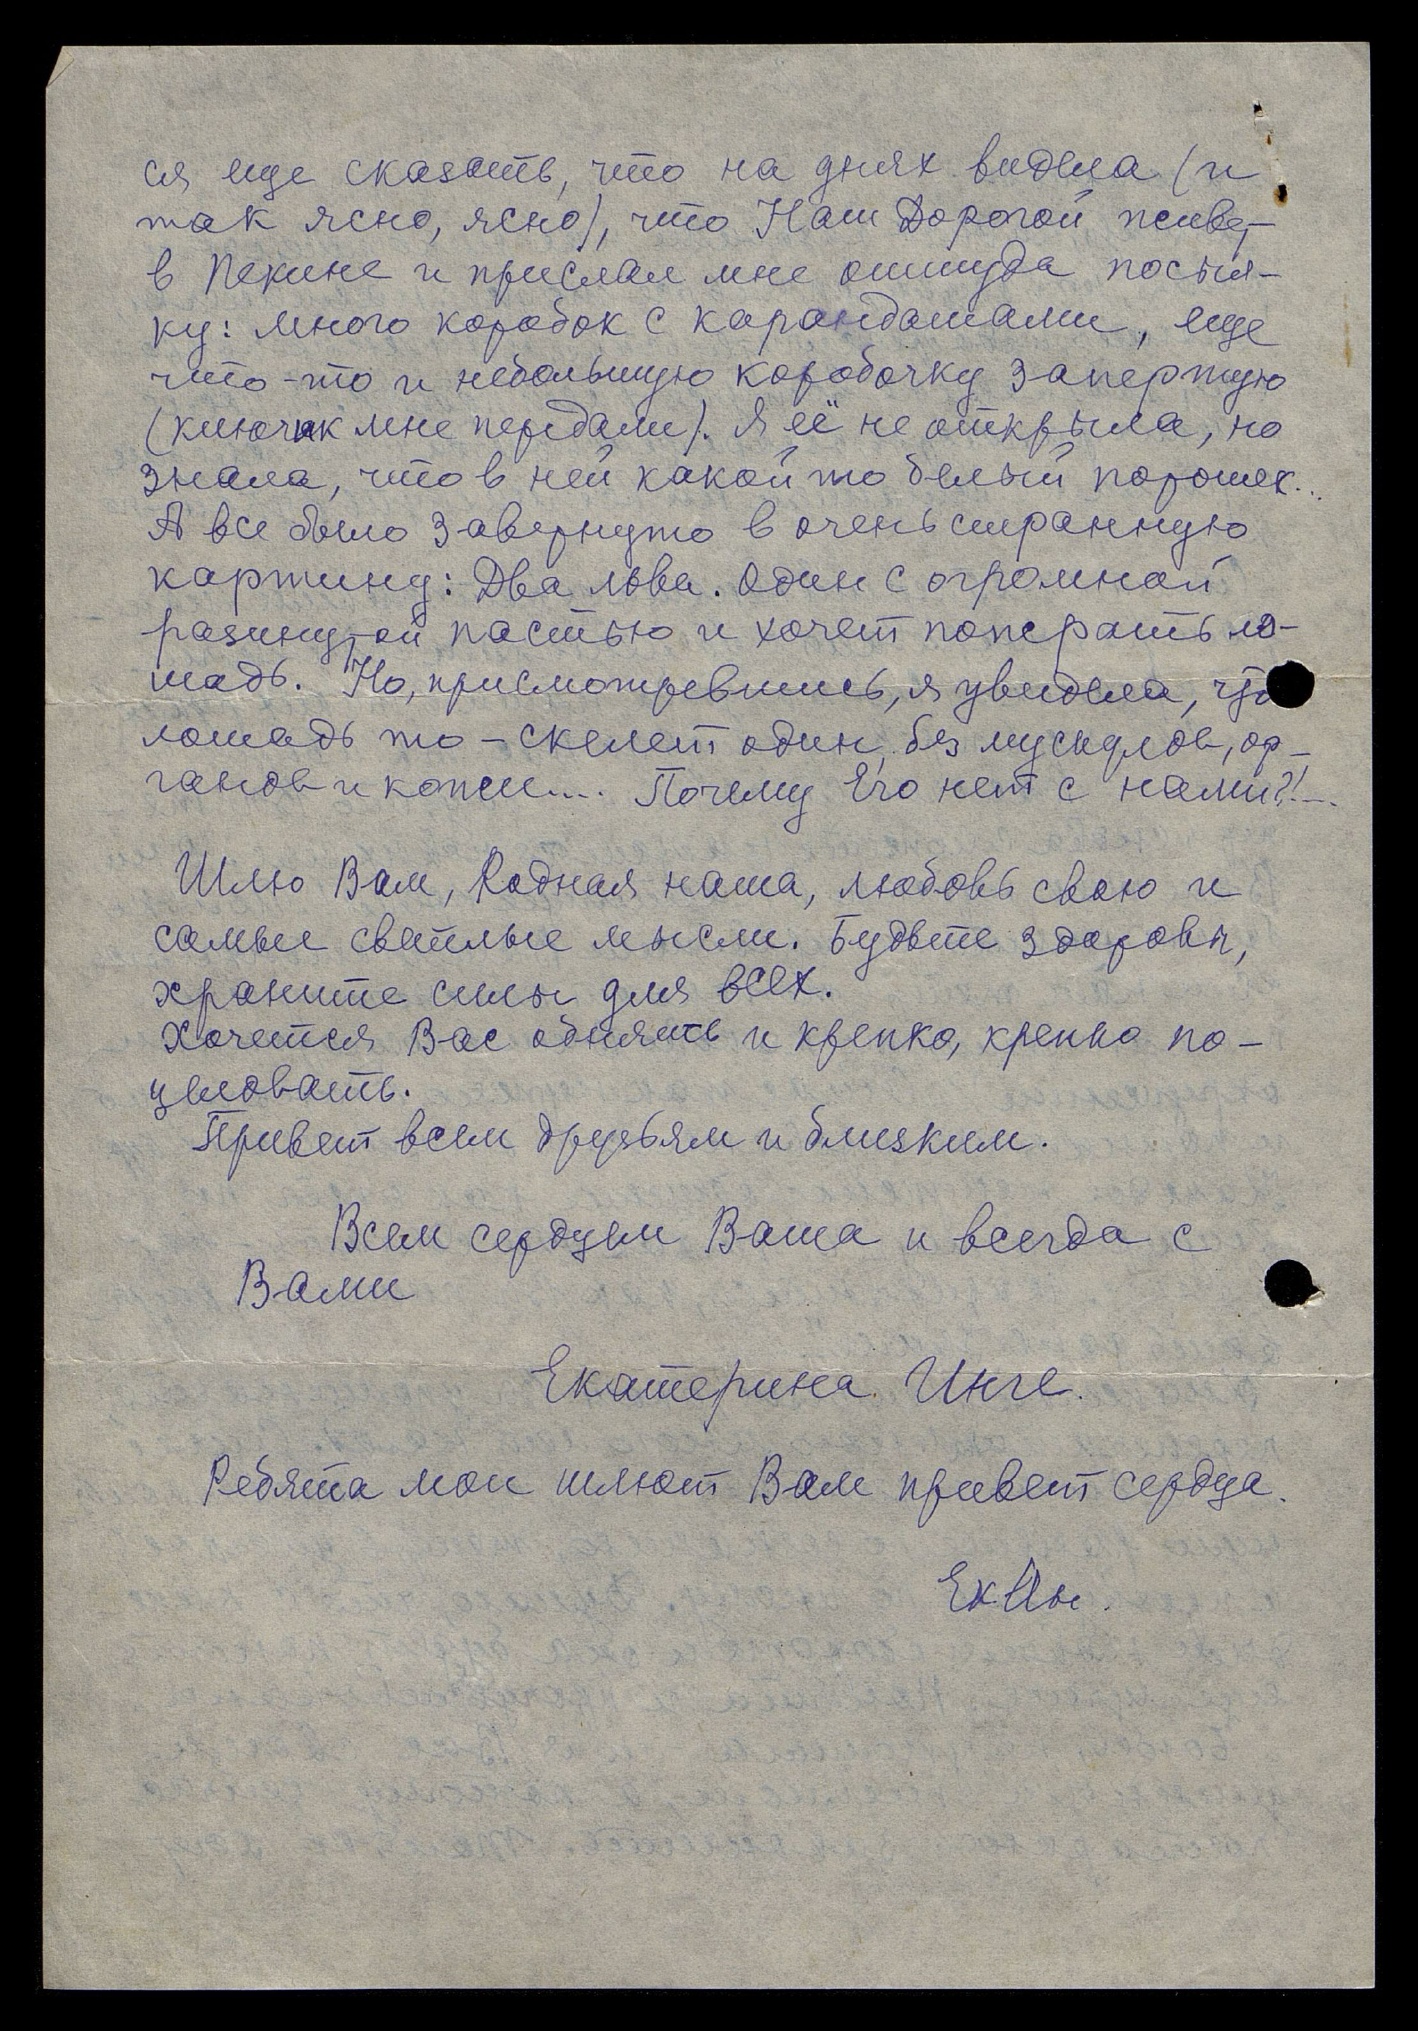 ся еще сказать, что на днях видела (и
так ясно, ясно), что Наш Дорогой живет
в Пекине и прислал мне оттуда посыл-
ку: много коробок с карандашами, еще
что-то и небольшую коробочку запертую
(ключик мне передали). Я её не открыла, но
знала, что в ней какой то белый порошек...
А все было завернуто в очень странную
картину: Два льва. Один с огромной
разинутой пастью и хочет пожерать ло-
шадь. Но, присмотревшись, я увидела, что
лошадь то – скелет один, без мускулов, ор-
ганов и кожи.... Почему Его нет с нами?!...
Шлю Вам, Родная наша, любовь свою и
самые светлые мысли. Будьте здоровы,
храните силы для всех.
Хочется Вас обнять и крепко, крепко по-
целовать.
Привет всем друзьям и близким.
Всем сердцем Ваша и всегда с
Вами
Екатерина Инге.
Ребята мои шлют Вам привет сердца.
Ек Ин.